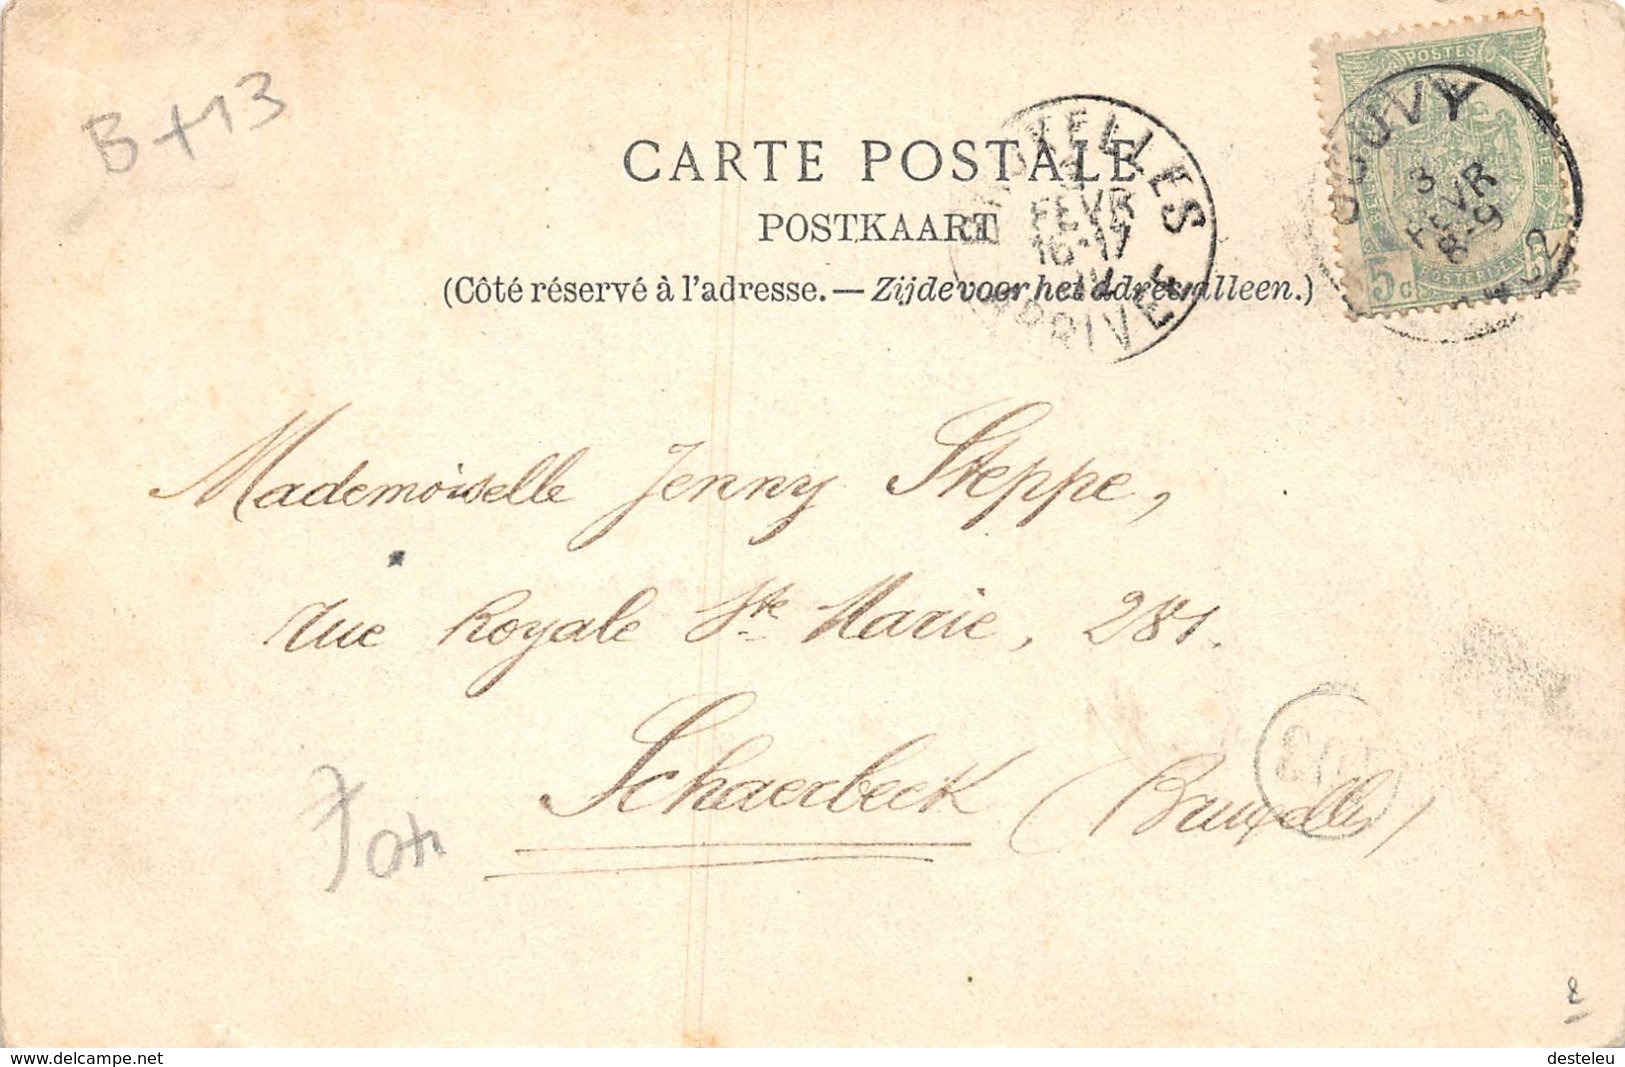 B+13
CARTE POSTALE
POSTKAART
(Côté réservé à l'adresse. — Zijde voor het adres alleen.)
BRUXELLES
FEVR
16-17
ARRIVEE
POSTES
GOUVY
3
FEVR
8-9
5c
5
Mademoiselle Jenny Steppe,
rue Royale Ste Marie, 281.
Schaerbeek (Bruxelles)
www.delcampe.net
desteleu